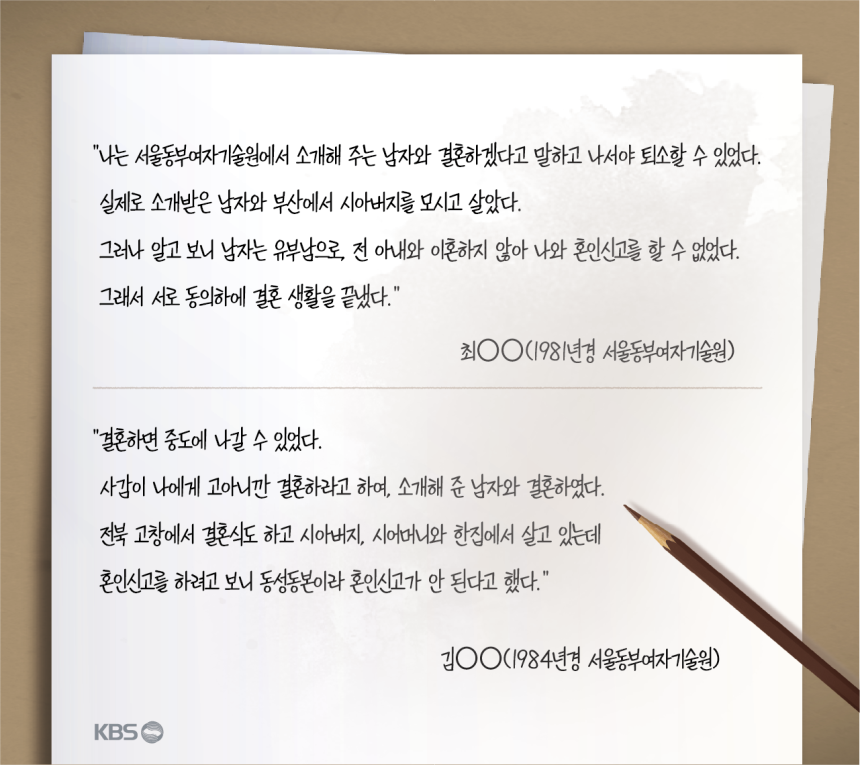 "나는 서울동부여자기술원에서 소개해 주는 남자와 결혼하겠다고 말하고 나서야 퇴소할 수 있었다.
실제로 소개받은 남자와 부산에서 시아버지를 모시고 살았다.
그러나 알고 보니 남자는 유부남으로, 전 아내와 이혼하지 않아 나와 혼인신고를 할 수 없었다.
그래서 서로 동의하에 결혼 생활을 끝냈다."
최○○(1981년경 서울동부여자기술원)
"결혼하면 중도에 나갈 수 있었다.
사감이 나에게 고아니깐 결혼하라고 하여, 소개해 준 남자와 결혼하였다.
전북 고창에서 결혼식도 하고 시아버지, 시어머니와 한집에서 살고 있는데
혼인신고를 하려고 보니 동성동본이라 혼인신고가 안 된다고 했다."
김○○(1984년경 서울동부여자기술원)
KBS